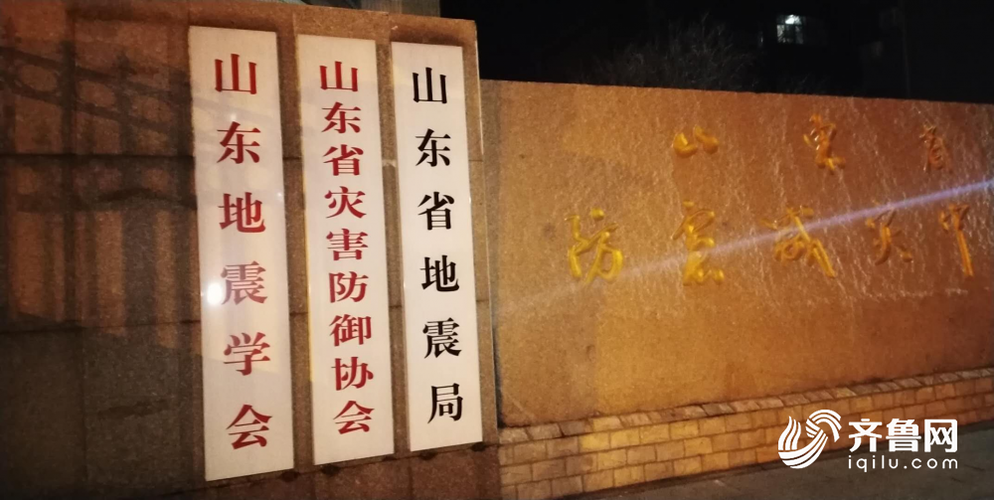 山东地震学会
山东省灾害防御协会
山东省地震局
山东省
防震减灾中
齐鲁网
iqilu.com